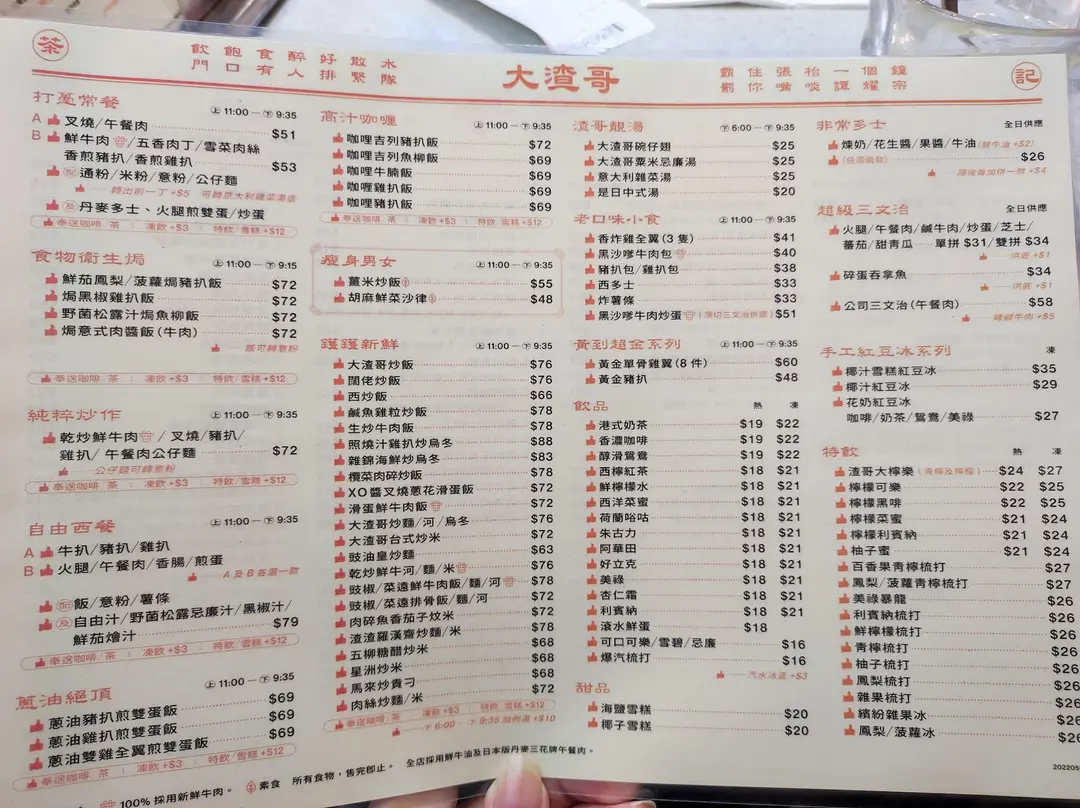 茶
飲飽食醉好散水
門口有人排緊隊
大渣哥
霸住張枱一個鐘
罰你嘴啖譚耀宗
記
打蔥常餐 上11:00－下9:35
A 叉燒/午餐肉 $51
B 鮮牛肉/五香肉丁/雪菜肉絲
香煎豬扒/香煎雞扒 $53
配 通粉/米粉/意粉/公仔麵
轉出前一丁+$5 可轉意大利雜菜湯底
及 丹麥多士、火腿煎雙蛋/炒蛋
奉送咖啡/茶 凍飲+$3 特飲/雪糕+$12
食物衛生焗 上11:00－下9:15
鮮茄鳳梨/菠蘿焗豬扒飯 $72
焗黑椒雞扒飯 $72
野菌松露汁焗魚柳飯 $72
焗意式肉醬飯(牛肉) $72
飯可轉意粉
奉送咖啡/茶 凍飲+$3 特飲/雪糕+$12
純粹炒作 上11:00－下9:35
乾炒鮮牛肉/叉燒/豬扒/
雞扒/午餐肉公仔麵 $72
公仔麵可轉意粉
奉送咖啡/茶 凍飲+$3 特飲/雪糕+$12
自由西餐 上11:00－下9:35
A 牛扒/豬扒/雞扒
B 火腿/午餐肉/香腸/煎蛋
A及B各選一款
配 飯/意粉/薯條
及 自由汁/野菌松露忌廉汁/黑椒汁/
鮮茄燴汁 $79
奉送咖啡/茶 凍飲+$3 特飲/雪糕+$12
蔥油絕頂 上11:00－下9:35
蔥油豬扒煎雙蛋飯 $69
蔥油雞扒煎雙蛋飯 $69
蔥油雙雞全翼煎雙蛋飯 $69
奉送咖啡/茶 凍飲+$3 特飲/雪糕+$12
高汁咖喱 上11:00－下9:35
咖喱吉列豬扒飯 $72
咖喱吉列魚柳飯 $69
咖喱牛腩飯 $69
咖喱雞扒飯 $69
咖喱豬扒飯 $69
奉送咖啡/茶 凍飲+$3 特飲/雪糕+$12
瘦身男女 上11:00－下9:35
薑米炒飯 $55
胡麻鮮菜沙律 $48
鑊鑊新鮮 上11:00－下9:35
大渣哥炒飯 $76
闊佬炒飯 $76
西炒飯 $66
鹹魚雞粒炒飯 $78
生炒牛肉飯 $78
照燒汁雞扒炒烏冬 $88
雜錦海鮮炒烏冬 $83
欖菜肉碎炒飯 $78
XO醬叉燒蔥花滑蛋飯 $72
滑蛋鮮牛肉飯 $72
大渣哥炒麵/河/烏冬 $76
大渣哥台式炒米 $72
豉油皇炒麵 $63
乾炒鮮牛河/麵/米 $76
豉椒/菜遠鮮牛肉飯/麵/河 $78
豉椒/菜遠排骨飯/麵/河 $72
肉碎魚香茄子炆米 $72
渣渣羅漢齋炒麵/米 $78
五柳糖醋炒米 $68
星洲炒米 $68
馬來炒貴刁 $68
肉絲炒麵/米 $72
奉送咖啡/茶 凍飲+$3 特飲/雪糕+$12
下6:00－下9:35加例湯+$10
渣哥靚湯 下6:00－下9:35
大渣哥碗仔翅 $25
大渣哥粟米忌廉湯 $25
意大利雜菜湯 $25
是日中式湯 $20
老口味小食 上11:00－下9:35
香炸雞全翼(3隻) $41
黑沙嗲牛肉包 $40
豬扒包/雞扒包 $38
西多士 $33
炸薯條 $33
黑沙嗲牛肉炒蛋(薄切三文治拼底) $51
黃到超金系列 上11:00－下9:35
黃金單骨雞翼(8件) $60
黃金豬扒 $48
飲品 熱 凍
港式奶茶 $19 $22
香濃咖啡 $19 $22
醇滑鴛鴦 $19 $22
西檸紅茶 $18 $21
鮮檸檬水 $18 $21
西洋菜蜜 $18 $21
荷蘭唂咕 $18 $21
朱古力 $18 $21
阿華田 $18 $21
好立克 $18 $21
美祿 $18 $21
杏仁霜 $18 $21
利賓納 $18 $21
滾水鮮蛋 $18
可口可樂/雪碧/忌廉 $16
爆汽梳打 $16
汽水冰底+$3
甜品
海鹽雪糕 $20
椰子雪糕 $20
非常多士 全日供應
煉奶/花生醬/果醬/牛油(鮮牛油+$2)
(任溝兩款) $26
隨後每加拼一款+$4
超級三文治 全日供應
火腿/午餐肉/鹹牛肉/炒蛋/芝士/
蕃茄/甜青瓜 單拼$31/雙拼$34
烘底+$1
碎蛋吞拿魚 $34
烘底+$1
公司三文治(午餐肉) $58
轉鹹牛肉+$5
手工紅豆冰系列 凍
椰汁雪糕紅豆冰 $35
椰汁紅豆冰 $29
花奶紅豆冰
咖啡/奶茶/鴛鴦/美祿 $27
特飲 熱 凍
渣哥大檸樂(青檸及檸檬) $24 $27
檸檬可樂 $22 $25
檸檬黑啡 $22 $25
檸檬菜蜜 $21 $24
檸檬利賓納 $21 $24
柚子蜜 $21 $24
百香果青檸梳打 $27
鳳梨/菠蘿青檸梳打 $27
美祿暴龍 $26
利賓納梳打 $26
鮮檸檬梳打 $26
青檸梳打 $26
柚子梳打 $26
鳳梨梳打 $26
雜果梳打 $26
繽紛雜果冰 $26
鳳梨/菠蘿冰 $26
100%採用新鮮牛肉。 素食 所有食物，售完即止。 全店採用鮮牛油及日本版丹麥三花牌午餐肉。
202205